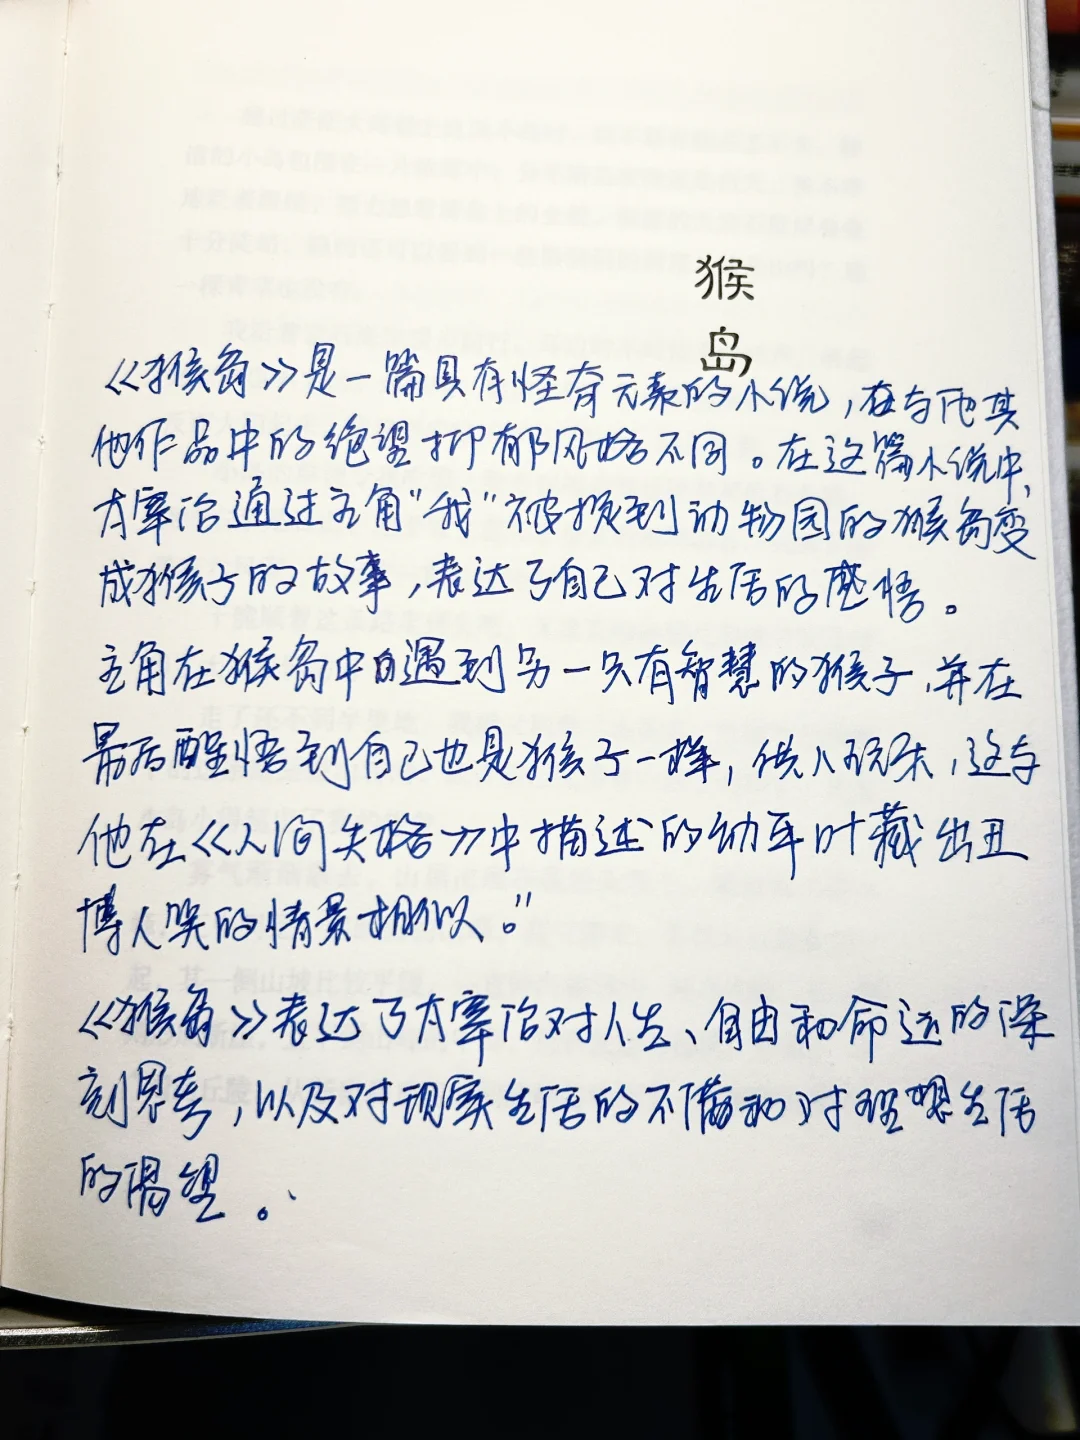 猴
岛
《猴岛》是一篇具有怪奇元素的小说，在与他其
他作品中的绝望抑郁风格不同。在这篇小说中，
太宰治通过主角“我”被掳到动物园的猴岛变
成猴子的故事，表达了自己对生活的感悟。
主角在猴岛中遇到另一只有智慧的猴子，并在
最后醒悟到自己也是猴子一样，供人玩乐，这与
他在《人间失格》中描述的幼年时藏出丑
博人笑的情景相似。”
《猴岛》表达了太宰治对人生、自由和命运的深
刻思考，以及对现实生活的不满和对理想生活
的渴望。